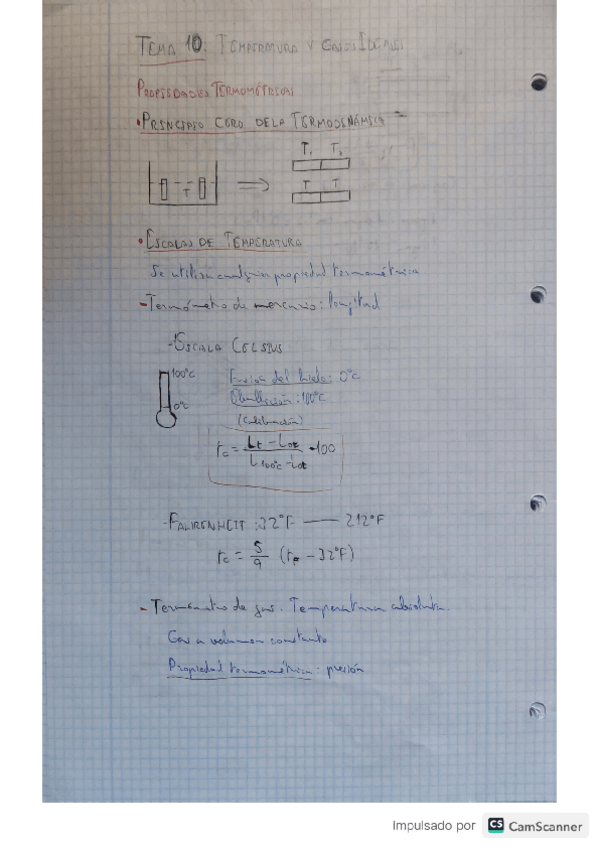 TEMA 10: TEMPERATURA Y GASES IDEALES
PROPIEDADES TERMOMÉTRICAS
• PRINCIPIO CERO DE LA TERMODINÁMICA =
T₁ T₂
T
T T
• ESCALAS DE TEMPERATURA
Se utiliza cualquier propiedad termométrica
- Termómetro de mercurio: longitud
- ESCALA CELSIUS
100ºC
0ºC
Fusión del hielo: 0ºC
Ebullición: 100ºC
(Calibración)
tc = Lt - L0t / L100ºC - L0t · 100
- FAHRENHEIT: 32ºF — 212ºF
tc = 5/9 (tF - 32ºF)
- Termómetro de gas. Temperatura absoluta.
Gas a volumen constante
Propiedad termométrica: presión
Impulsado por CS CamScanner